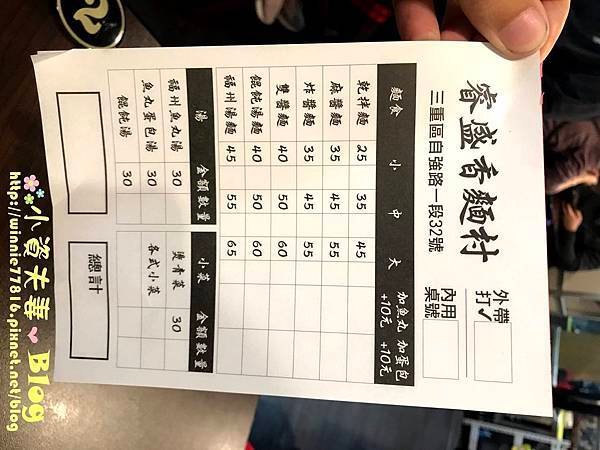 睿盛香麵村
三重區自強路一段32號
外帶打✓
內用桌號
麵食 小 中 大 加魚丸+10元 加蛋包+10元
乾拌麵 25 35 45
麻醬麵 35 45 55
炸醬麵 35 45 55
雙醬麵 40 50 60
餛飩湯麵 40 50 60
福州湯麵 45 55 65
湯 金額 數量
福州魚丸湯 30
魚丸蛋包湯 30
餛飩湯 30
小菜 金額 數量
燙青菜 30
各式小菜
總計
2
小資夫妻 Blog
http://winnie77816.pixnet.net/blog